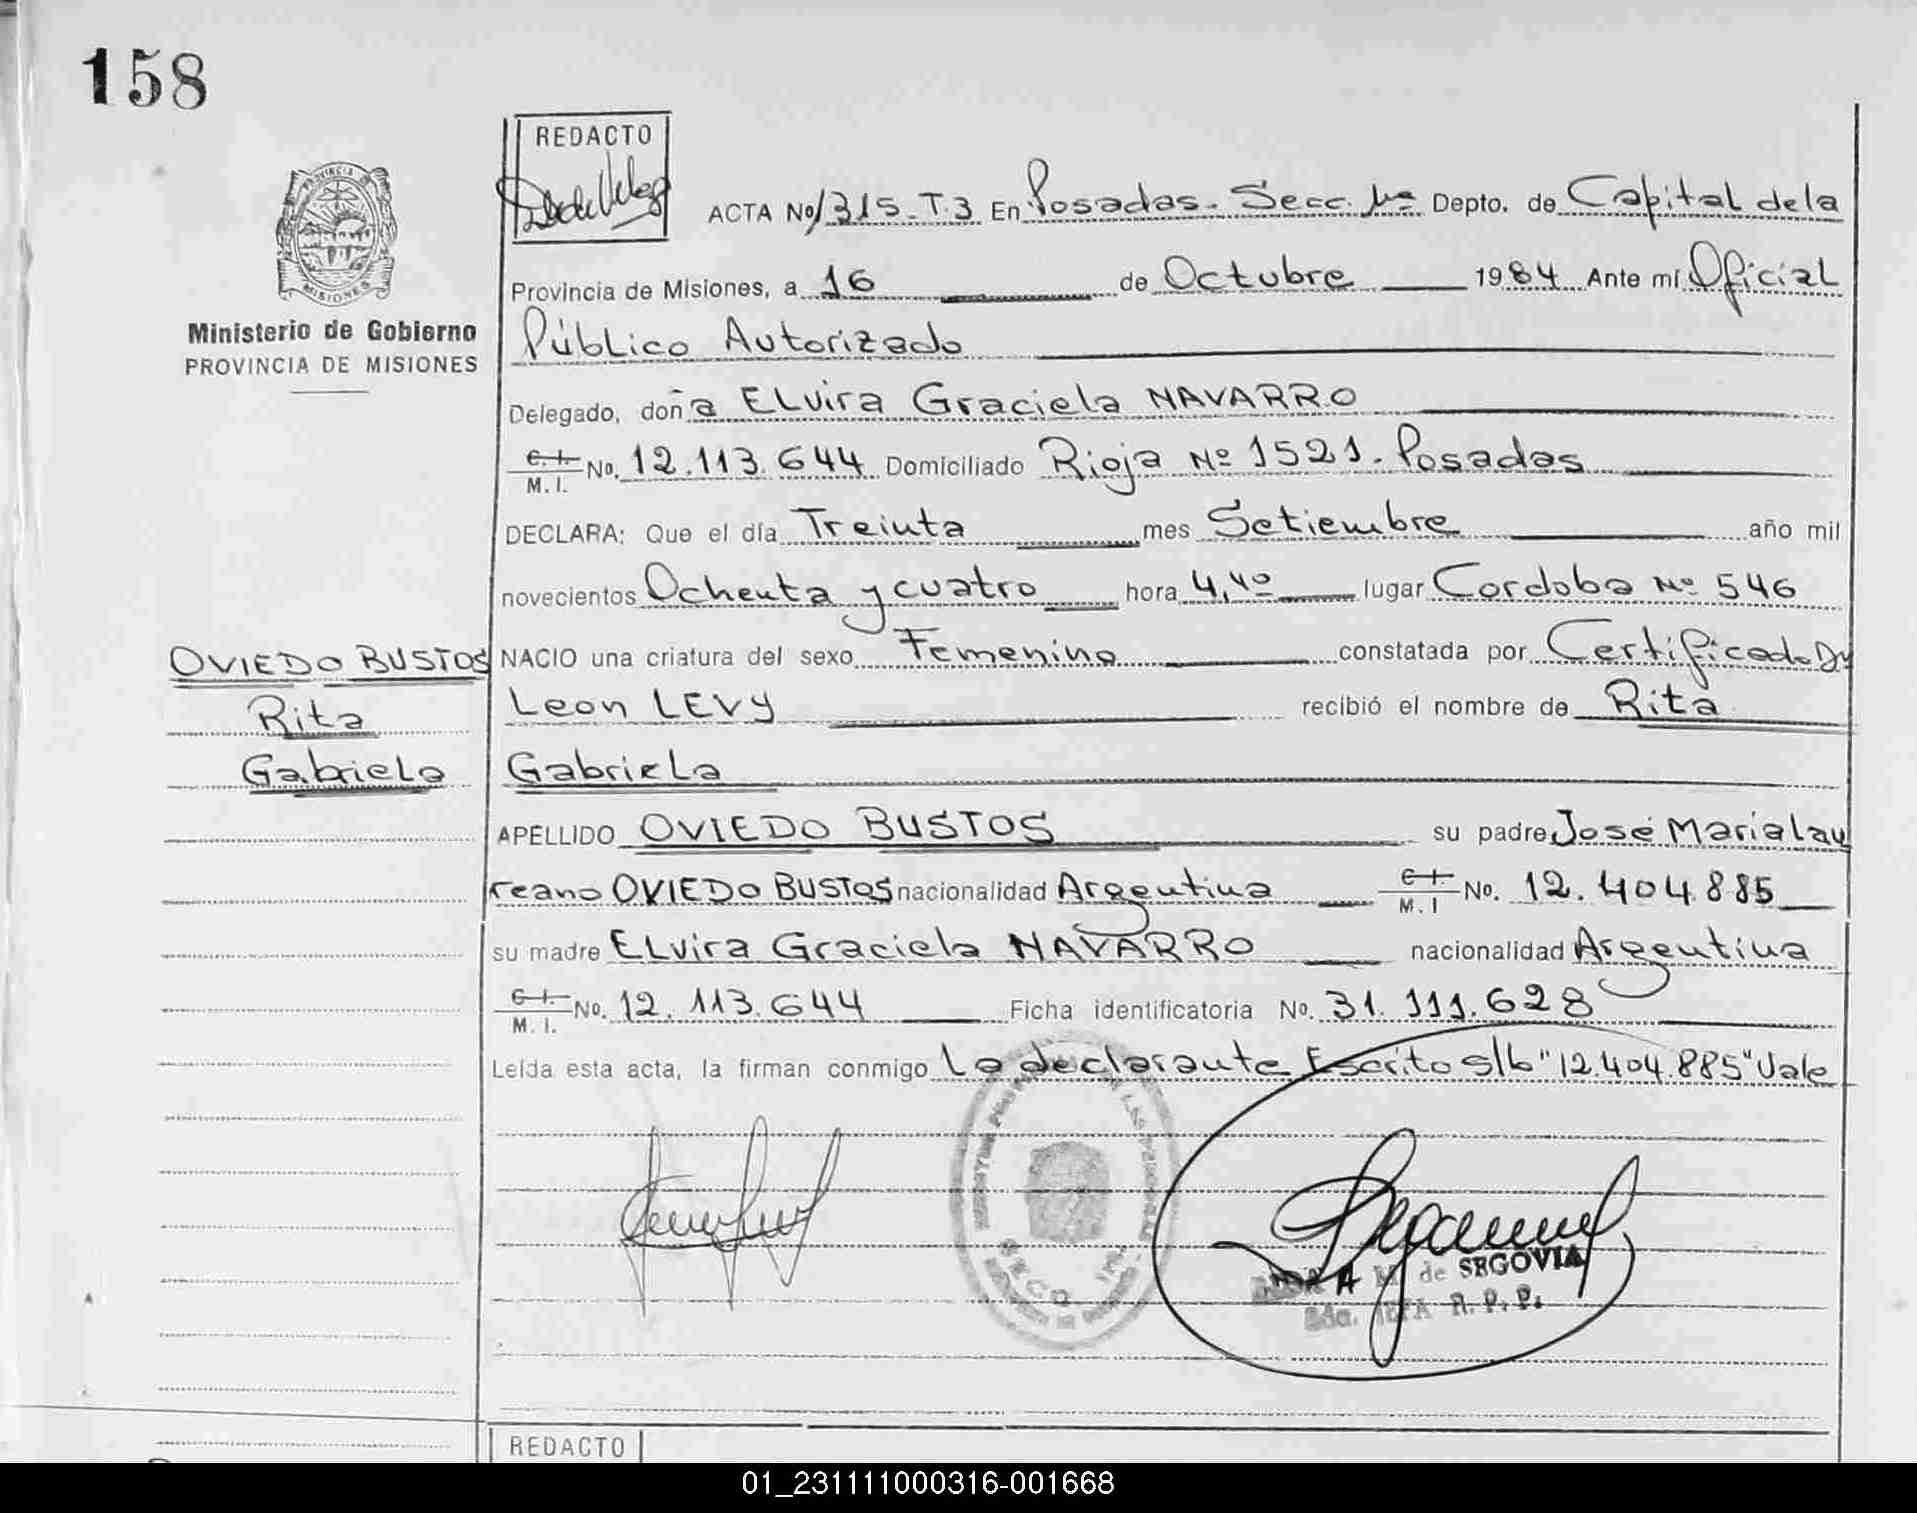 158
REDACTO
ACTA Nº 1315-T.3 En Posadas- Secc. 1ª Depto. de Capital de la
PROVINCIA DE
MISIONES
Provincia de Misiones, a 16 de Octubre 1984 Ante mí Oficial
Ministerio de Gobierno
PROVINCIA DE MISIONES
Público Autorizado
Delegado, doña ELvira Graciela NAVARRO
C. I.
M. I. No. 12.113.644 Domiciliado Rioja Nº 1521- Posadas
DECLARA: Que el día Treinta mes Setiembre año mil
novecientos Ochenta y cuatro hora 4,40 lugar Cordoba Nº 546
OVIEDO BUSTOS
NACIO una criatura del sexo Femenino constatada por Certificado Dr
Rita
Leon LEVY recibió el nombre de Rita
Gabriela
Gabriela
APELLIDO OVIEDO BUSTOS su padre José Maria Lau
reano OVIEDO BUSTOS nacionalidad Argentina C. I.
M. I No. 12.404.885
su madre ELvira Graciela NAVARRO nacionalidad Argentina
C. I.
M. I. No. 12.113.644 Ficha identificatoria No. 31.111.628
Leída esta acta, la firman conmigo La declarante Escrito s/b "12.404.885" Vale
M. de SEGOVIA
2da. JEFA R. P. P.
REDACTO
01_231111000316-001668